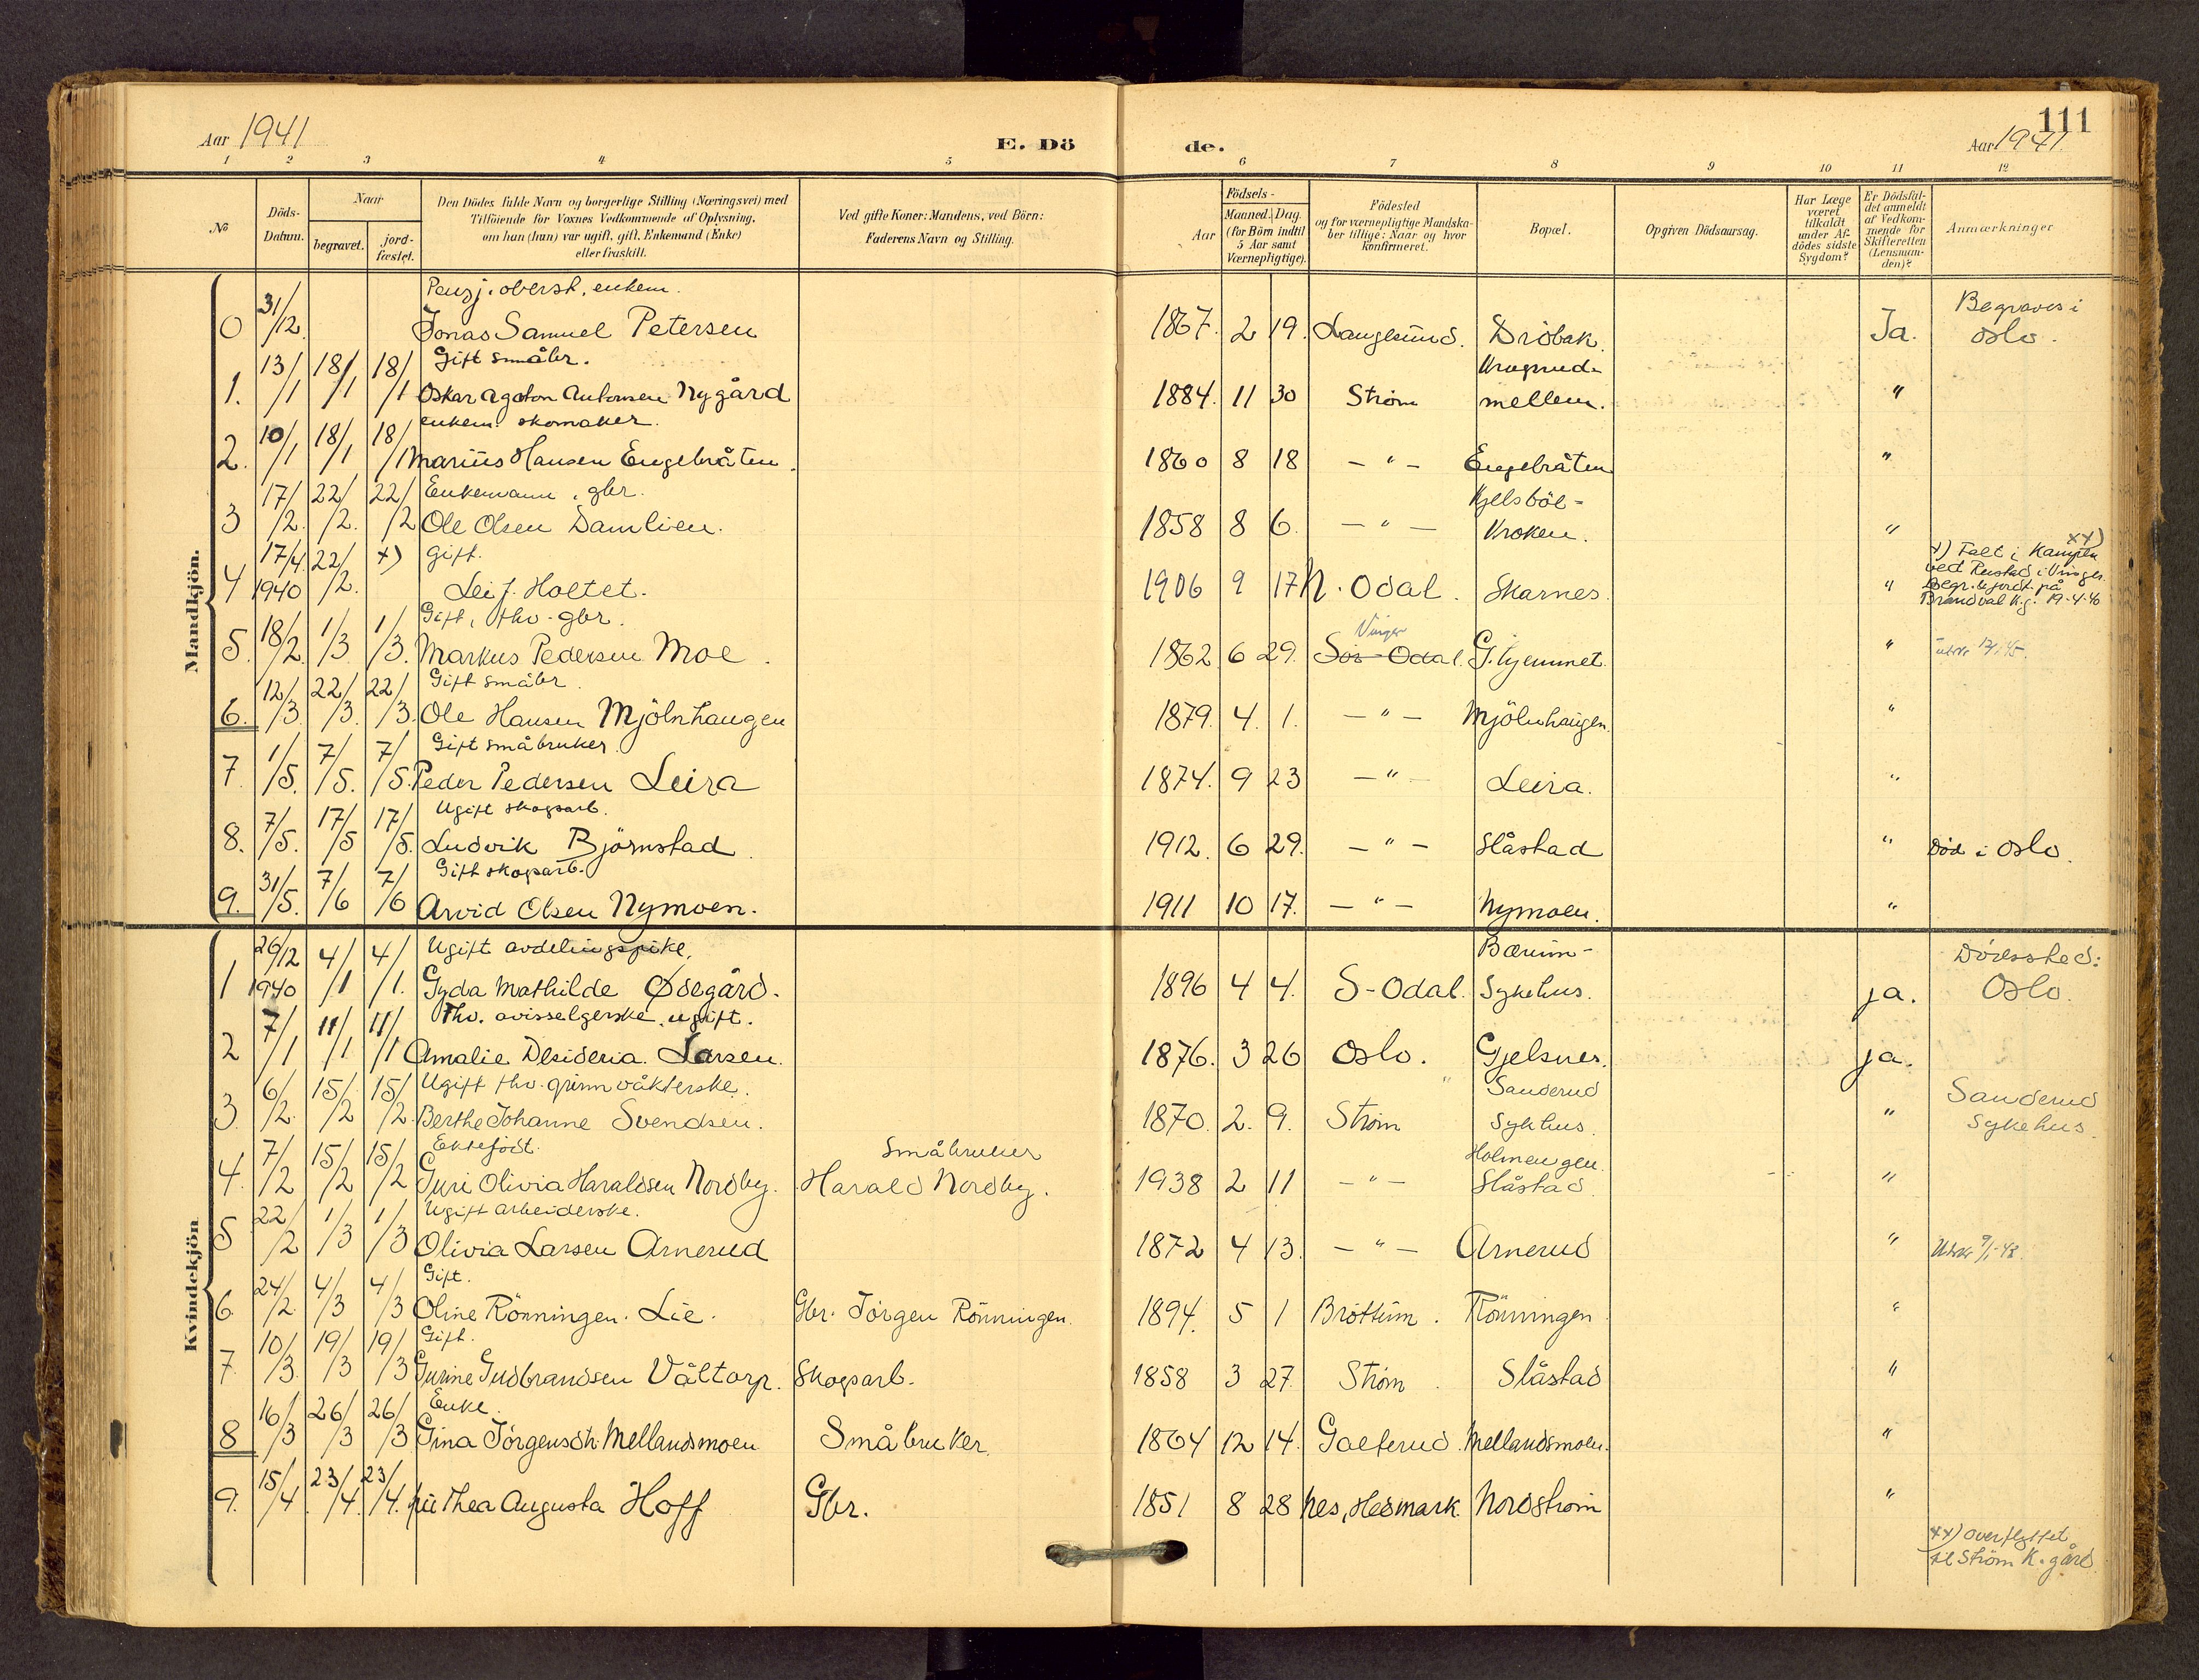 111
Aar 1941 E. Dö de. Aar 1941
1 2 3 4 5 6 7 8 9 10 11 12
№
Döds-
Datum.
Naar
begravet. jord-
fæstet.
Den Dödes fulde Navn og borgerlige Stilling (Næringsvei) med
Tilföiende for Voxnes Vedkommende af Oplysning,
om han (hun) var ugift, gift, Enkemand (Enke)
eller fraskilt.
Ved gifte Koner: Mandens, ved Börn:
Faderens Navn og Stilling.
Födsels-
Aar Maaned. Dag.
(for Börn indtil
5 Aar samt
Værnepligtige).
Födested
og for værnepligtige Mandska-
ber tillige: Naar og hvor
konfirmeret.
Bopæl.
Opgiven Dödsaarsag.
Har Læge
været
tilkaldt
under Af-
dödes sidste
Sygdom?
Er Dödsfal-
det anmeldt
af Vedkom-
mende for
Skifteretten
(Lensman-
den)?
Anmærkninger
Mandkjön.
Pensj. oberst, enkem. Begraves i
0 31/12. Jonas Samuel Petersen 1867. 2 19. Langesund. Dröbak. Ja. Oslo.
Gift småbr.
1. 13/1 18/1 18/1 Oskar Agaton Antonsen Nygård 1884. 11 30 Ström mellem. "
enkem. skomaker.
2. 10/1 18/1 18/1 Marius Hansen Engebråten. 1860 8 18 - " - Engebråten "
Enkemann, gbr. Kjelsböl-
3 17/2. 22/2. 22/2 Ole Olsen Damlien. 1858 8 6. - " - Kroken. "
gift. xx)
4 17/4 1940 22/2. x) Leif Holtet. 1906 9 17 N. Odal. Skarnes. "
x) Falt i Kampen
ved Rustad i Vinger.
Begr. & jordf. på
Brandval K.g. 19-4-40
Gift, fhv. gbr. Vinger
5. 18/2. 1/3 1/3. Markus Pedersen Moe. 1862 6 29. Sör-Odal. G. hjemmet. "
Gift småbr.
6. 12/3. 22/3. 22/3. Ole Hansen Mjölnhaugen 1879. 4. 1. - " - Mjölnhaugen. "
Gift småbruker.
7. 1/5. 7/5. 7/5. Peder Pedersen Leira 1874. 9 23 - " - Leira. "
Ugift skogsarb.
8. 7/5. 17/5 17/5. Ludvik Björnstad. 1912. 6 29. - " - Slåstad " Död i Oslo.
Gift skogsarb.
9. 31/5. 7/6 7/6 Arvid Olsen Nymoen. 1911 10 17. - " - Nymoen. "
Kvindekjön
Ugift avdelingspike. Bærum- Dödssted:
1 26/12 1940 4/1 4/1. Gyda Mathilde Ødegård. 1896 4 4. S-Odal. Sykehus. ja. Oslo.
Fhv. avisselgerske, ugift.
2 7/1 11/1 11/1 Amalie Desideria. Larsen. 1876. 3 26 Oslo. Gjelsnes. ja.
Ugift fhv. grinnvåkterske. Sanderud Sanderud
3. 6/2. 15/2 15/2 Berthe Johanne Svendsen. 1870. 2. 9. Ström Sykhus. " Sykehus.
Ektefödt. Småbruker
4. 7/2 15/2 15/2 Guri Olivia Haraldsen Nordby. Harald Nordby. 1938 2 11 - " - Slåstad. "
Ugift arbeiderske.
5 22/2 1/3 1/3 Olivia Larsen Arnerud 1872 4 13. - " - Arnerud " Utskr 9/1-43.
Gift.
6. 24/2. 4/3 4/3 Oline Rönningen. Lie. Gbr. Jörgen Rönningen. 1894. 5 1 Bröttum. Rönningen "
Gift.
7. 10/3. 19/3 19/3 Gurine Gudbrandsen Våltorp. Skogsarb. 1858 3 27. Ström. Slåstad "
Enke.
8 16/3 26/3 26/3 Gina Jörgensdtr. Mellandsmoen Småbruker. 1864 12 14. Galterud. Mellandsmoen. "
9. 15/4. 23/4. 23/4. Thea Augusta Hoff Gbr. 1851 8 28 Nes, Hedmark. Nordström "
xx) overflyttet
til Ström K.gård.